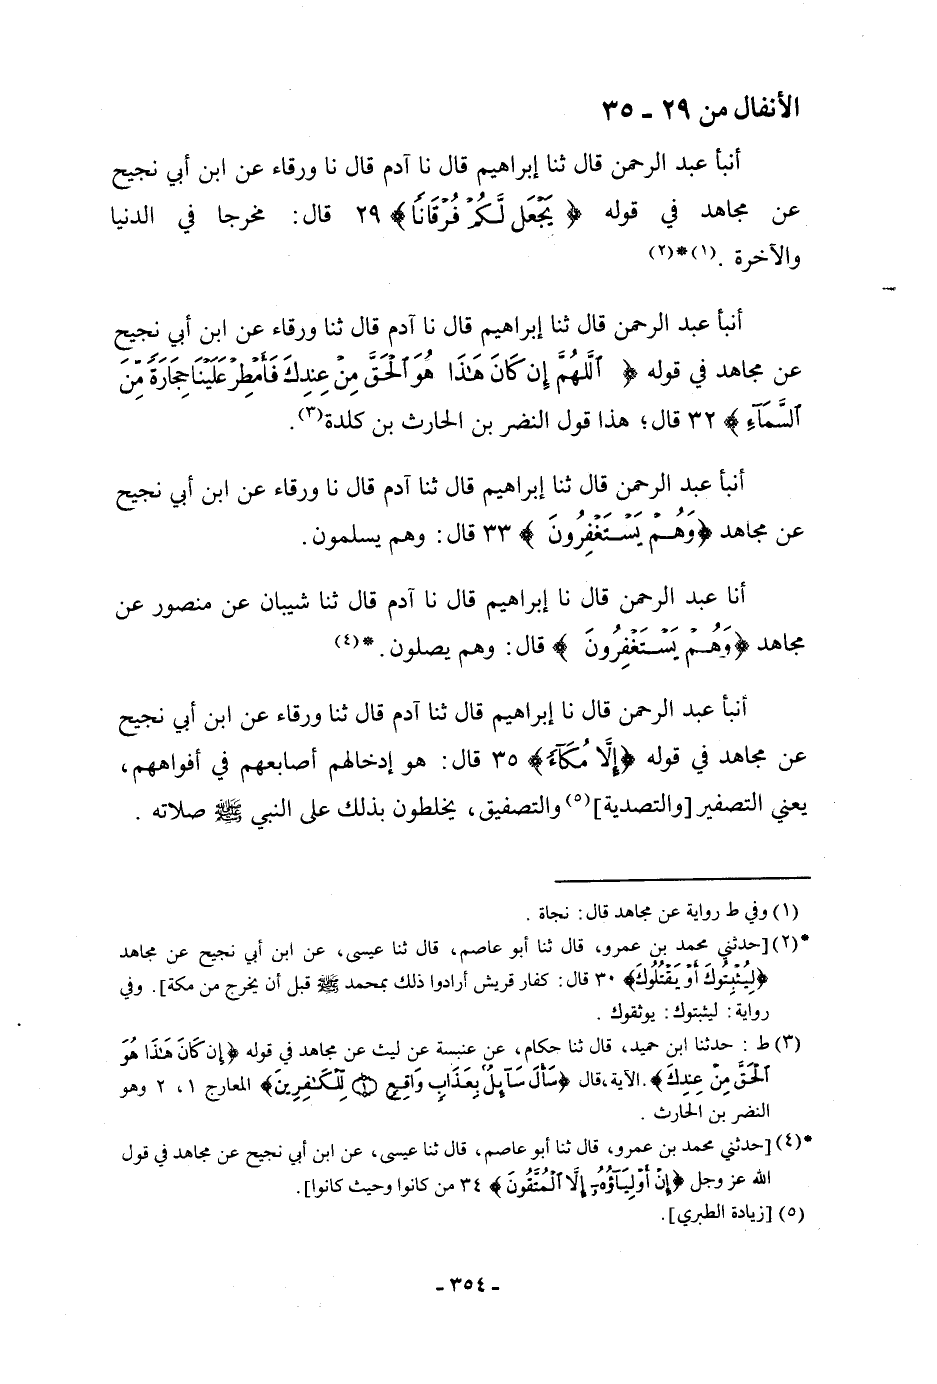 الأنفال من ٢٩ ـ ٣٥
أنبأ عبد الرحمن قال ثنا إبراهيم قال نا آدم قال نا ورقاء عن ابن أبي نجيح
عن مجاهد في قوله ﴿ يَجْعَل لَّكُمْ فُرْقَانًا ﴾ ٢٩ قال: مخرجا في الدنيا
والآخرة .(١)*(٢)
أنبأ عبد الرحمن قال ثنا إبراهيم قال نا آدم قال ثنا ورقاء عن ابن أبي نجيح
عن مجاهد في قوله ﴿ ٱللَّهُمَّ إِن كَانَ هَٰذَا هُوَ ٱلْحَقَّ مِنْ عِندِكَ فَأَمْطِرْ عَلَيْنَا حِجَارَةً مِّنَ
ٱلسَّمَآءِ ﴾ ٣٢ قال؛ هذا قول النضر بن الحارث بن كلدة(٣).
أنبأ عبد الرحمن قال ثنا إبراهيم قال ثنا آدم قال نا ورقاء عن ابن أبي نجيح
عن مجاهد ﴿وَهُمْ يَسْتَغْفِرُونَ ﴾ ٣٣ قال: وهم يسلمون.
أنا عبد الرحمن قال نا إبراهيم قال نا آدم قال ثنا شيبان عن منصور عن
مجاهد ﴿وَهُمْ يَسْتَغْفِرُونَ ﴾ قال: وهم يصلون. *(٤)
أنبأ عبد الرحمن قال نا إبراهيم قال ثنا آدم قال ثنا ورقاء عن ابن أبي نجيح
عن مجاهد في قوله ﴿إِلَّا مُكَآءً﴾ ٣٥ قال: هو إدخالهم أصابعهم في أفواههم،
يعني التصفير [والتصدية](٥) والتصفيق، يخلطون بذلك على النبي ﷺ صلاته .
(١) وفي ط رواية عن مجاهد قال: نجاة .
*(٢) [حدثني محمد بن عمرو، قال ثنا أبو عاصم، قال ثنا عيسى، عن ابن أبي نجيح عن مجاهد
﴿لِيُثْبِتُوكَ أَوْ يَقْتُلُوكَ﴾ ٣٠ قال: كفار قريش أرادوا ذلك بمحمد ﷺ قبل أن يخرج من مكة]. وفي
رواية: ليثبتوك: يوثقوك .
(٣) ط : حدثنا ابن حميد، قال ثنا حكام، عن عنبسة عن ليث عن مجاهد في قوله ﴿إِن كَانَ هَٰذَا هُوَ
ٱلْحَقَّ مِنْ عِندِكَ﴾.الآية،قال ﴿سَأَلَ سَآئِلٌۢ بِعَذَابٍ وَاقِعٍ ۝١ لِّلْكَٰفِرِينَ﴾ المعارج ١، ٢ وهو
النضر بن الحارث .
*(٤) [حدثني محمد بن عمرو، قال ثنا أبو عاصم، قال ثنا عيسى، عن ابن أبي نجيح عن مجاهد في قول
الله عز وجل ﴿إِنْ أَوْلِيَآؤُهُۥٓ إِلَّا ٱلْمُتَّقُونَ﴾ ٣٤ من كانوا وحيث كانوا].
(٥) [زيادة الطبري].
ـ ٣٥٤ ـ